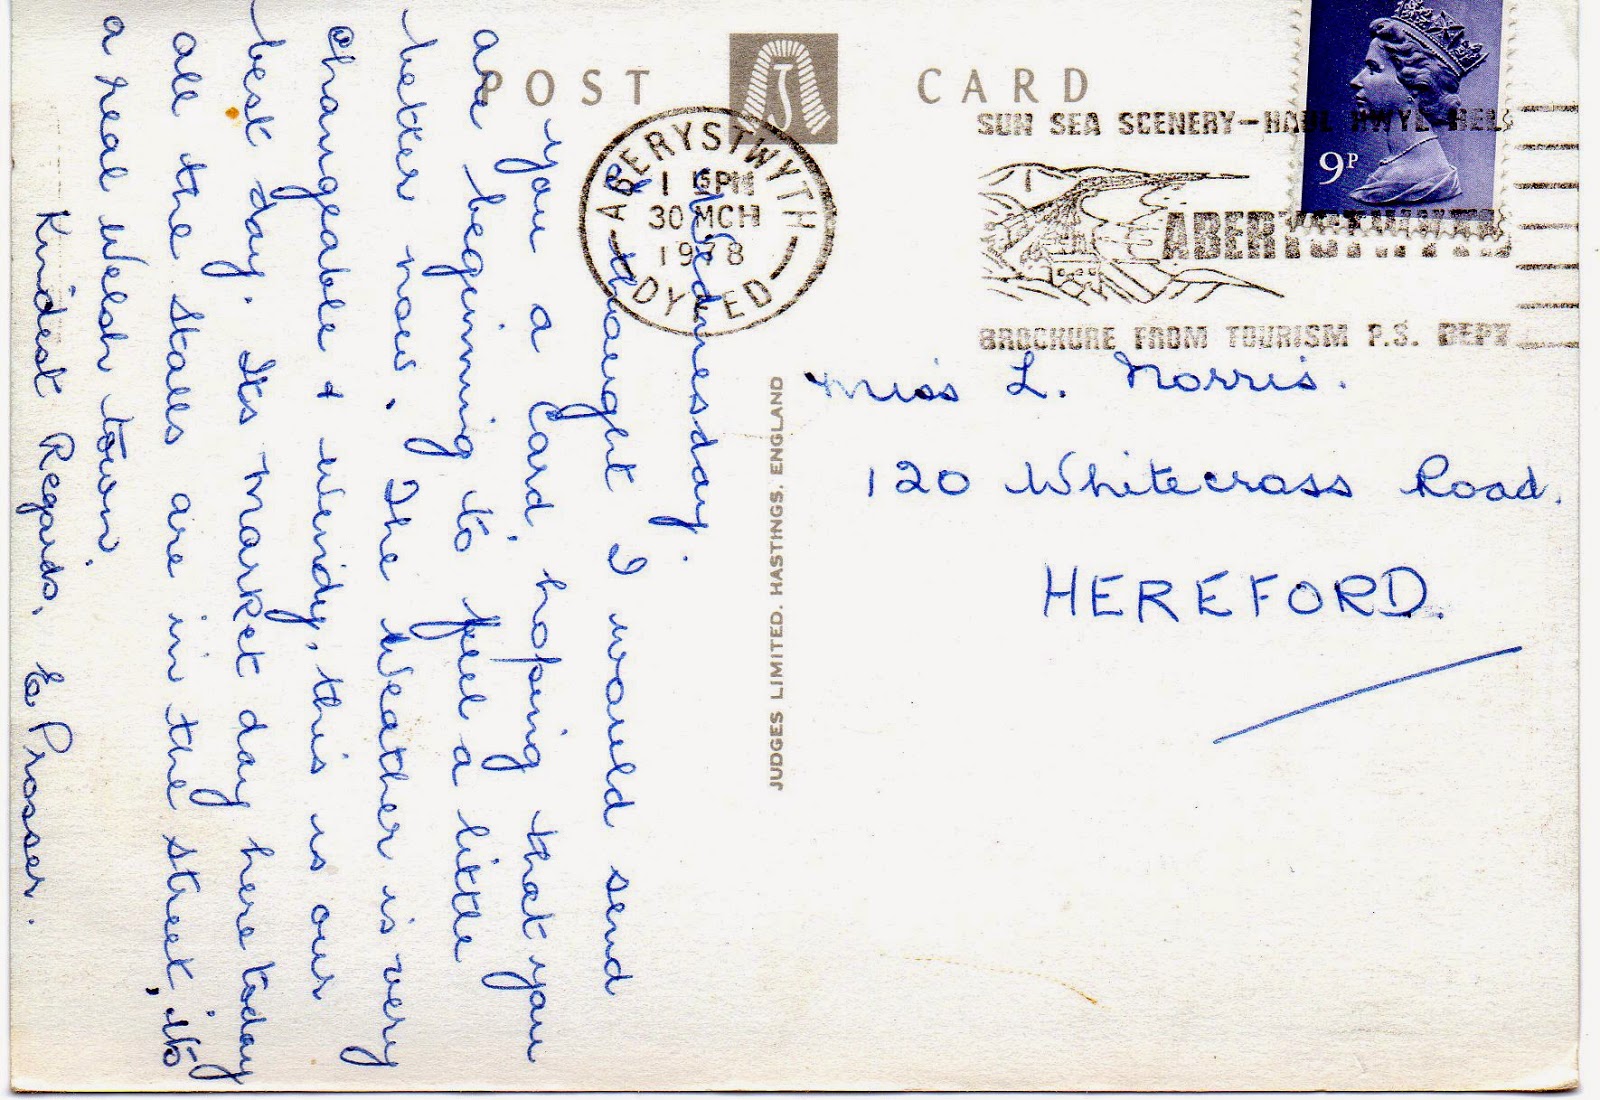 POST CARD
ABERYSTWYTH
1 PM
30 MCH
1978
DYFED
SUN SEA SCENERY-HAUL HWYL HELI
ABERYSTWYTH
BROCHURE FROM TOURISM P.S. DEPT
9P
Wednesday.
I thought I would send
you a card, hoping that you
are beginning to feel a little
better now. The weather is very
changeable & windy, this is our
best day. Its market day here today
all the stalls are in the street, its
a real Welsh town.
Kindest Regards, E Prosser.
JUDGES LIMITED, HASTINGS, ENGLAND
Miss L. Norris.
120 Whitecross Road.
HEREFORD.